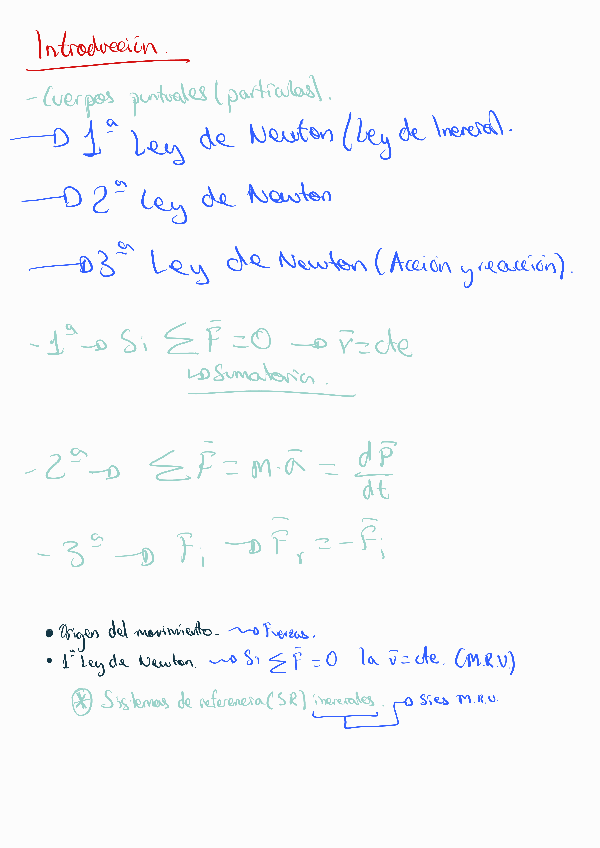 Introducción.
- Cuerpos puntuales (partículas).
→ 1ª Ley de Newton (Ley de Inercia).
→ 2ª Ley de Newton
→ 3ª Ley de Newton (Acción y reacción).
- 1ª → Si ∑ F̄ = 0 → v̄ = cte
↳ Sumatoria.
- 2ª → ∑ F̄ = m · ā = dp̄/dt
- 3ª → F̄i → F̄r = - F̄i
• Origen del movimiento. → Fuerzas.
• 1ª Ley de Newton. → Si ∑ F̄ = 0 la v̄ = cte. (M.R.U)
* Sistemas de referencia (SR) inerciales. → Si es M.R.U.